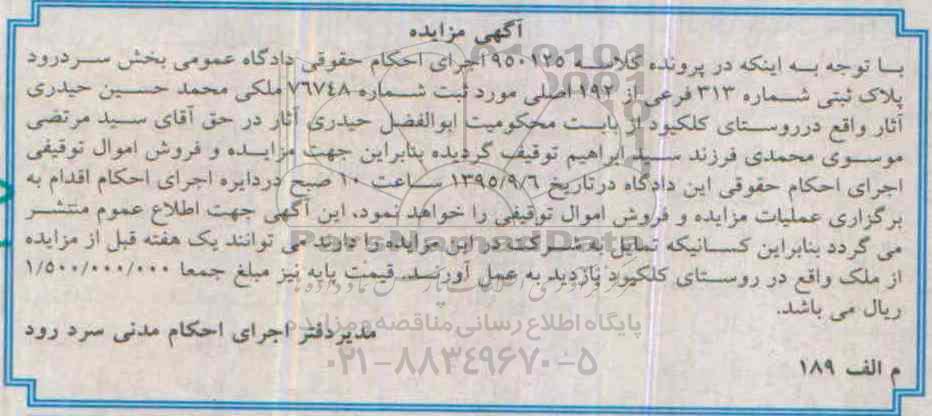 آگهی مزایده
با توجه به اینکه در پرونده کلاسه ۹۵۰۱۲۵ اجرای احکام حقوقی دادگاه عمومی بخش سردرود
پلاک ثبتی شماره ۳۱۳ فرعی از ۱۹۲ اصلی مورد ثبت شماره ۷٦۷٤۸ ملکی محمد حسین حیدری
آثار واقع درروستای کلکبود از بابت محکومیت ابوالفضل حیدری آثار در حق آقای سید مرتضی
موسوی محمدی فرزند سید ابراهیم توقیف گردیده بنابراین جهت مزایده و فروش اموال توقیفی
اجرای احکام حقوقی این دادگاه درتاریخ ۱۳۹۵/۹/٦ ساعت ۱۰ صبح دردایره اجرای احکام اقدام به
برگزاری عملیات مزایده و فروش اموال توقیفی را خواهد نمود. این آگهی جهت اطلاع عموم منتشر
می گردد بنابراین کسانیکه تمایل به شرکت در این مزایده را دارند می توانند یک هفته قبل از مزایده
از ملک واقع در روستای کلکبود بازدید به عمل آورند. قیمت پایه نیز مبلغ جمعا ۱/۵۰۰/۰۰۰/۰۰۰
ریال می باشد.
پایگاه اطلاع رسانی مناقصه و مزایده
مدیردفتر اجرای احکام مدنی سرد رود
۰۲۱-۸۸۳۴۹۶۷۰-۵
م الف ۱۸۹